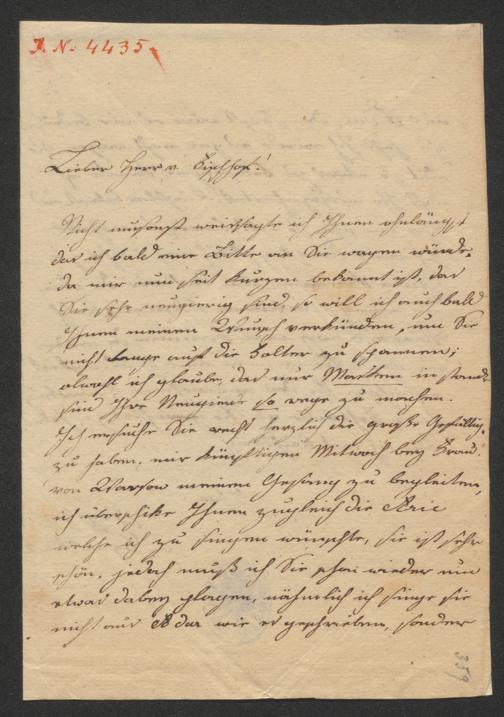 J. N. 4435
Lieber Herr v. Fischhof!
Nicht umsonst weissagte ich Ihnen ohnlängst
daß ich bald eine Bitte an Sie wagen würde,
da mir nun seit kurzen bekannt ist, daß
Sie sehr neugierig sind, so will ich auch bald
Ihnen meinen Wunsch verkünden, um Sie
nicht lange auf die Folter zu spannen;
obwohl ich glaube, daß nur in stande
sind Ihre Neugierde so rege zu machen.
Ich ersuche Sie recht herzlich die große Gefälligk.
zu haben, mir künftigen Mitwoch bey Frau
von Warsow meinen Gesang zu begleiten,
ich überschike Ihnen zugleich die Arie
welche ich zu singen wünschte, sie ist sehr
schön, jedoch muß ich Sie schon wieder um
etwas dabey plagen, nähmlich ich singe sie
nicht aus A dur wie es geschrieben, sonder
339